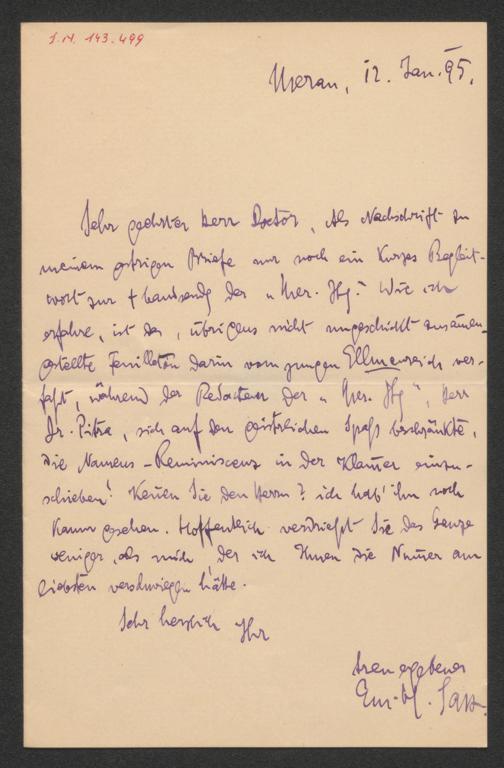 I.N. 143.499
Meran, 12. Jan. 95.
Sehr geehrter Herr Doctor, Als Nachschrift zu
meinem gestrigen Briefe nur noch ein kurzes Begleit-
wort zur + bandsendg der „Mer. Ztg." Wie ich
erfahre, ist das, übrigens nicht ungeschickt zusamen-
gestellte Feuilleton darin vom jungen Ellmenreich ver-
faßt, während der Redacteur der „Mer. Ztg", Herr
Dr. Pitra, sich auf den geistreichen Spaß beschränkte,
die Namens-Reminiscenz in der Klamer einzu-
schieben! Kenen Sie den Herrn? ich hab' ihn noch
kaum gesehen. Hoffentlich verdrießt Sie das Ganze
weniger, als mich, der ich Ihnen die Numer am
liebsten verschwiegen hätte.
Sehr herzlich Ihr
treu ergebener